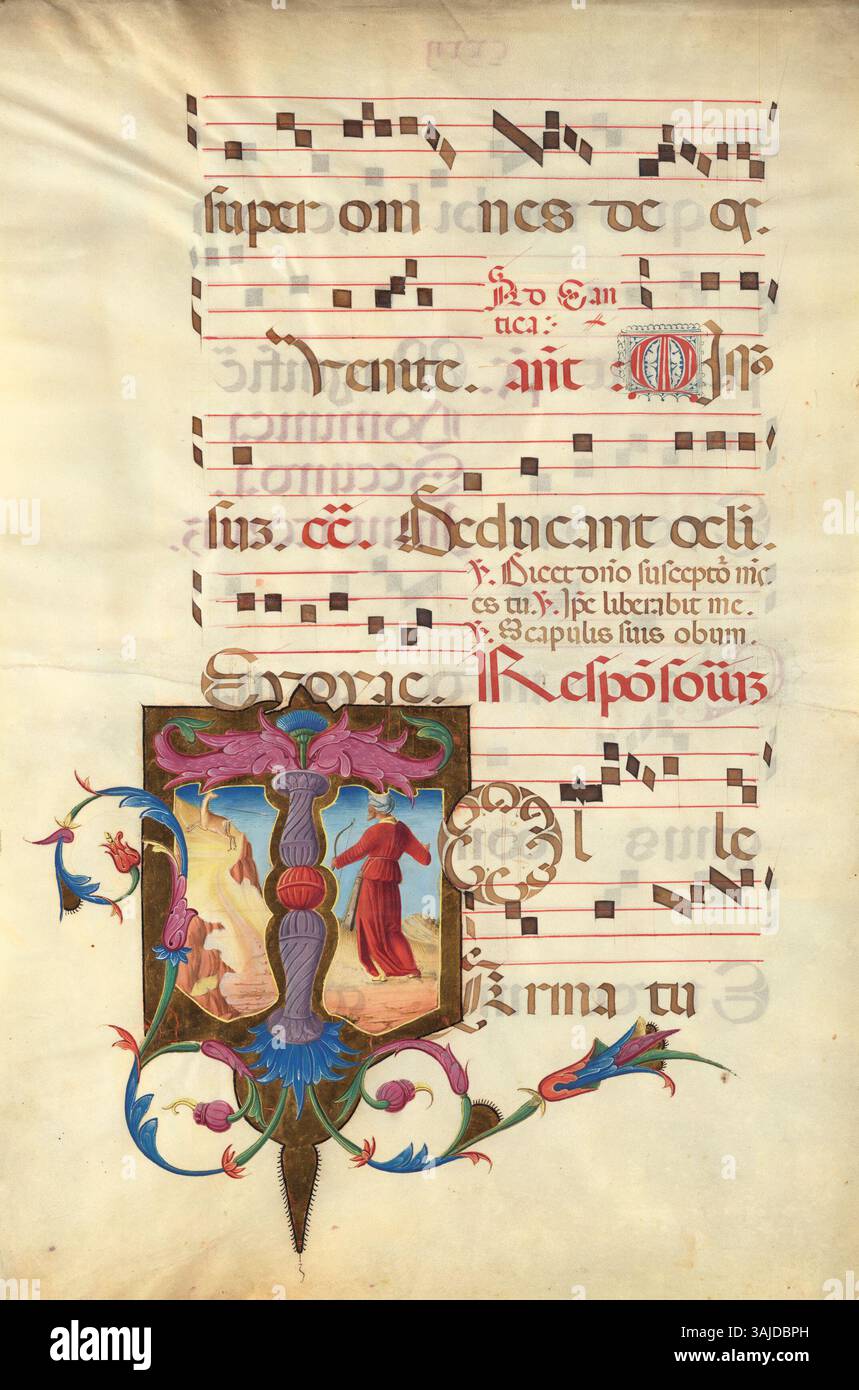 super om nes de os.
Ad Can
tica:
Venite. añt : Missꝰ
suꝫ. cc̃. Deducant ocli.
℣. Dicet dño susceptor̃ me
es tu. ℣. Ip̃e liberabit me.
℣. Scapulis suis obum.
Evovae. Respõsoriuꝫ
Tol le
Arma tu
alamy
Image ID: 3AJDBPH
www.alamy.com